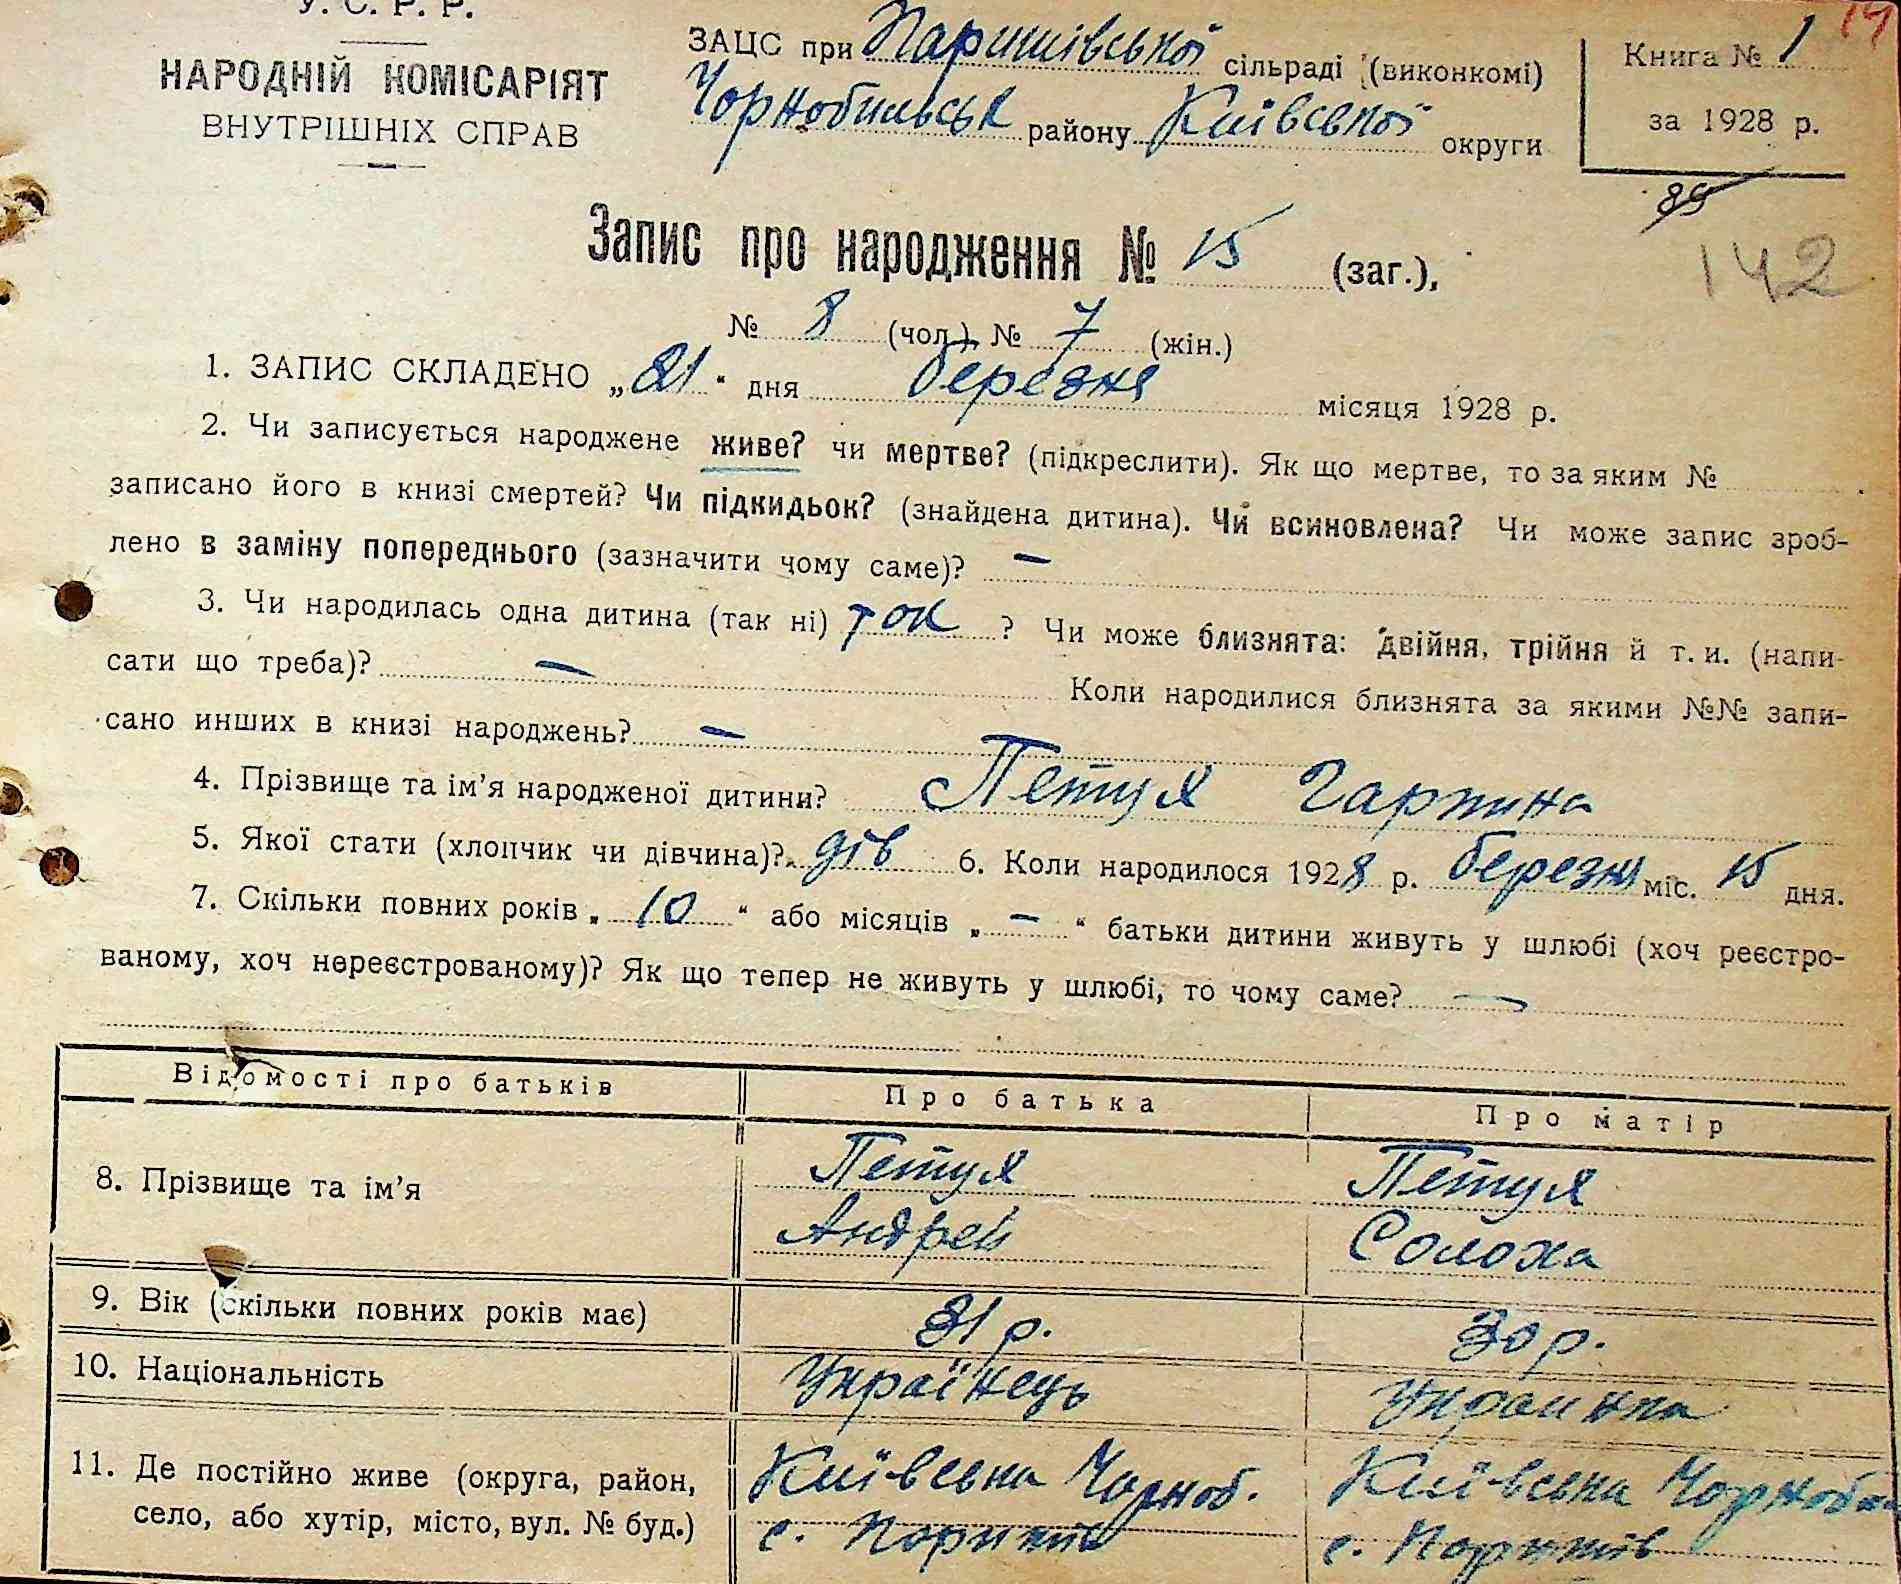 У. С. Р. Р.
НАРОДНІЙ КОМІСАРІЯТ
ВНУТРІШНІХ СПРАВ
ЗАЦС при Паришівської сільраді (виконкомі)
Чорнобильськ району Київської округи
Книга № 1
за 1928 р.
14
89
142
Запис про народження № 15 (заг.),
№ 8 (чол.), № 7 (жін.)
1. ЗАПИС СКЛАДЕНО „21“ дня березня місяця 1928 р.
2. Чи записується народжене живе? чи мертве? (підкреслити). Як що мертве, то за яким №
записано його в книзі смертей? Чи підкидьок? (знайдена дитина). Чи всиновлена? Чи може запис зроб-
лено в заміну попереднього (зазначити чому саме)? —
3. Чи народилась одна дитина (так ні) так ? Чи може близнята: двійня, трійня й т. и. (напи-
сати що треба)? — Коли народилися близнята за якими №№ запи-
сано инших в книзі народжень? —
4. Прізвище та ім’я народженої дитини? Петуя Гарпина
5. Якої стати (хлопчик чи дівчина)? дів 6. Коли народилося 1928 р. березня міс. 15 дня.
7. Скільки повних років „10“ або місяців „—“ батьки дитини живуть у шлюбі (хоч реєстро-
ваному, хоч нереєстрованому)? Як що тепер не живуть у шлюбі, то чому саме? —
Відомості про батьків Про батька Про матір
8. Прізвище та ім’я Петуя Петуя
Андрей Солоха
9. Вік (скільки повних років має) 31 р. 30 р.
10. Національність Українець Украинка
11. Де постійно живе (округа, район, Київська Чорноб. Київська
село, або хутір, місто, вул. № буд.) с. Паришів с. Паришів